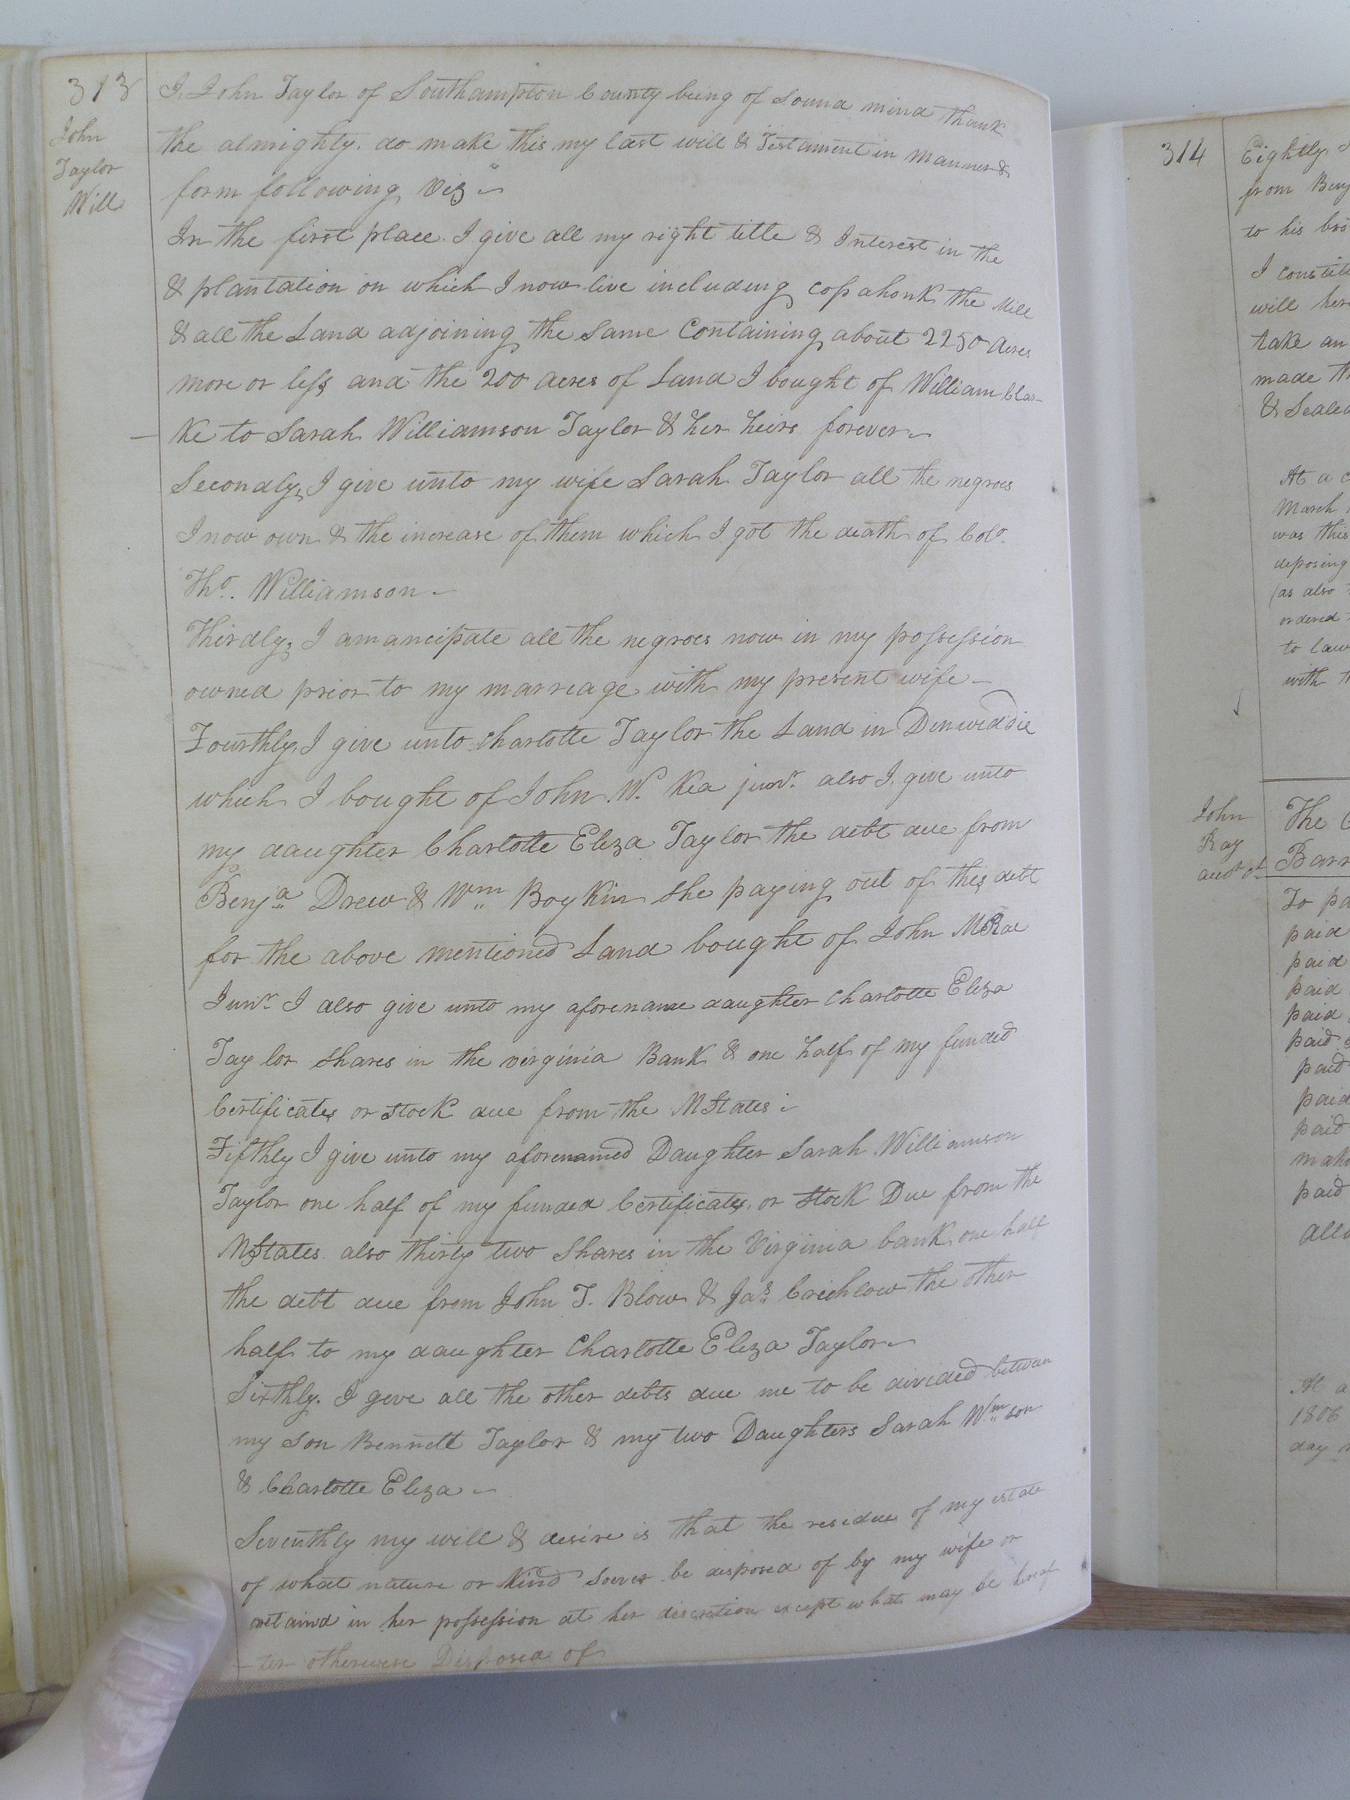 313
John
Taylor
Will
I. John Taylor of Southampton County being of sound mind thank
the almighty. do make this my last will & Testament in manner &
form following Viz
In the first place. I give all my right title & Interest in the
& plantation on which I now live including copahonk the Mill
& all the Land adjoining the same Containing about 2250 acres
more or less and the 200 acres of Land I bought of William Clar-
ke to Sarah Williamson Taylor & her heirs forever
Secondly, I give unto my wife Sarah Taylor all the negroes
I now own & the increase of them which I got the death of Colo.
Tho. Williamson
Thirdly, I amancipate all the negroes now in my possession
owned prior to my marreage with my present wife
Fourthly, I give unto Charlotte Taylor the Land in Dinwiddie
which I bought of John W. Rea junr. also I. give unto
my daughter Charlotte Eliza Taylor the debt due from
Benja Drew & Wm Boykin she paying out of this debt
for the above mentioned Land bought of John McRae
Junr. I also give unto my aforename daughter Charlotte Eliza
Taylor shares in the virginia Bank & one half of my funded
Certificates or stock due from the States
Fifthly I give unto my aforenamed Daughter Sarah Williamson
Taylor one half of my funded Certificates. or stock Due from the
States also thirty two shares in the Virginia bank one half
the debt due from John T. Blow & Jas. Crichlow the other
half to my daughter Charlotte Eliza Taylor
Sixthly. I give all the other debts due me to be divided between
my son Bennett Taylor & my two Daughters Sarah Wmson
& Charlotte Eliza
Seventhly my will & desire is that the residue of my estate
of what nature or kind soever be disposed of by my wife or
retaind in her possession at her discretion except what may be hereaf
-ter otherwise Disposed of
314
Eightly
from Benj
to his bro
I constit
will her
take an
made th
& Seale
At a c
March
was this
deposing
(as also
ordered
to law
with
John
Ray
audt. ct.
The
Barr
To pa
paid
paid
paid
paid
paid
paid
paid
paid
mak
paid
All
At a
1806
day